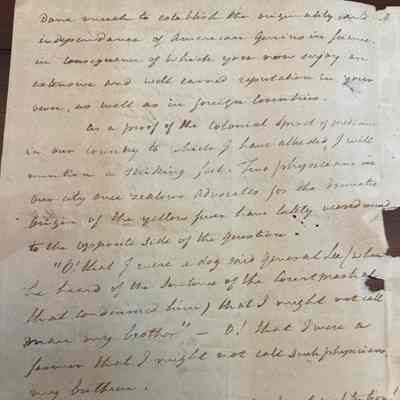 done much to establish the originality and
independance of American Genius in science,
in consequence of which you now enjoy an
extensive and well earned reputation in your
own, as well as in foreign Countries.
As a proof of the Colonial Spirit of
in our Country to which I have alluded, I will
mention a striking fact. Two physicians in
our city once zealous advocates for the domestic
Origin of the yellow fever have lately
to the opposite side of the question.
"O! that I were a dog said general Lee (when
he heard of the Sentence of the Court martial
that condemned him) that I might not call
man my brother" — O! that I were a
farmer that I might not call such physicians
my brethren.